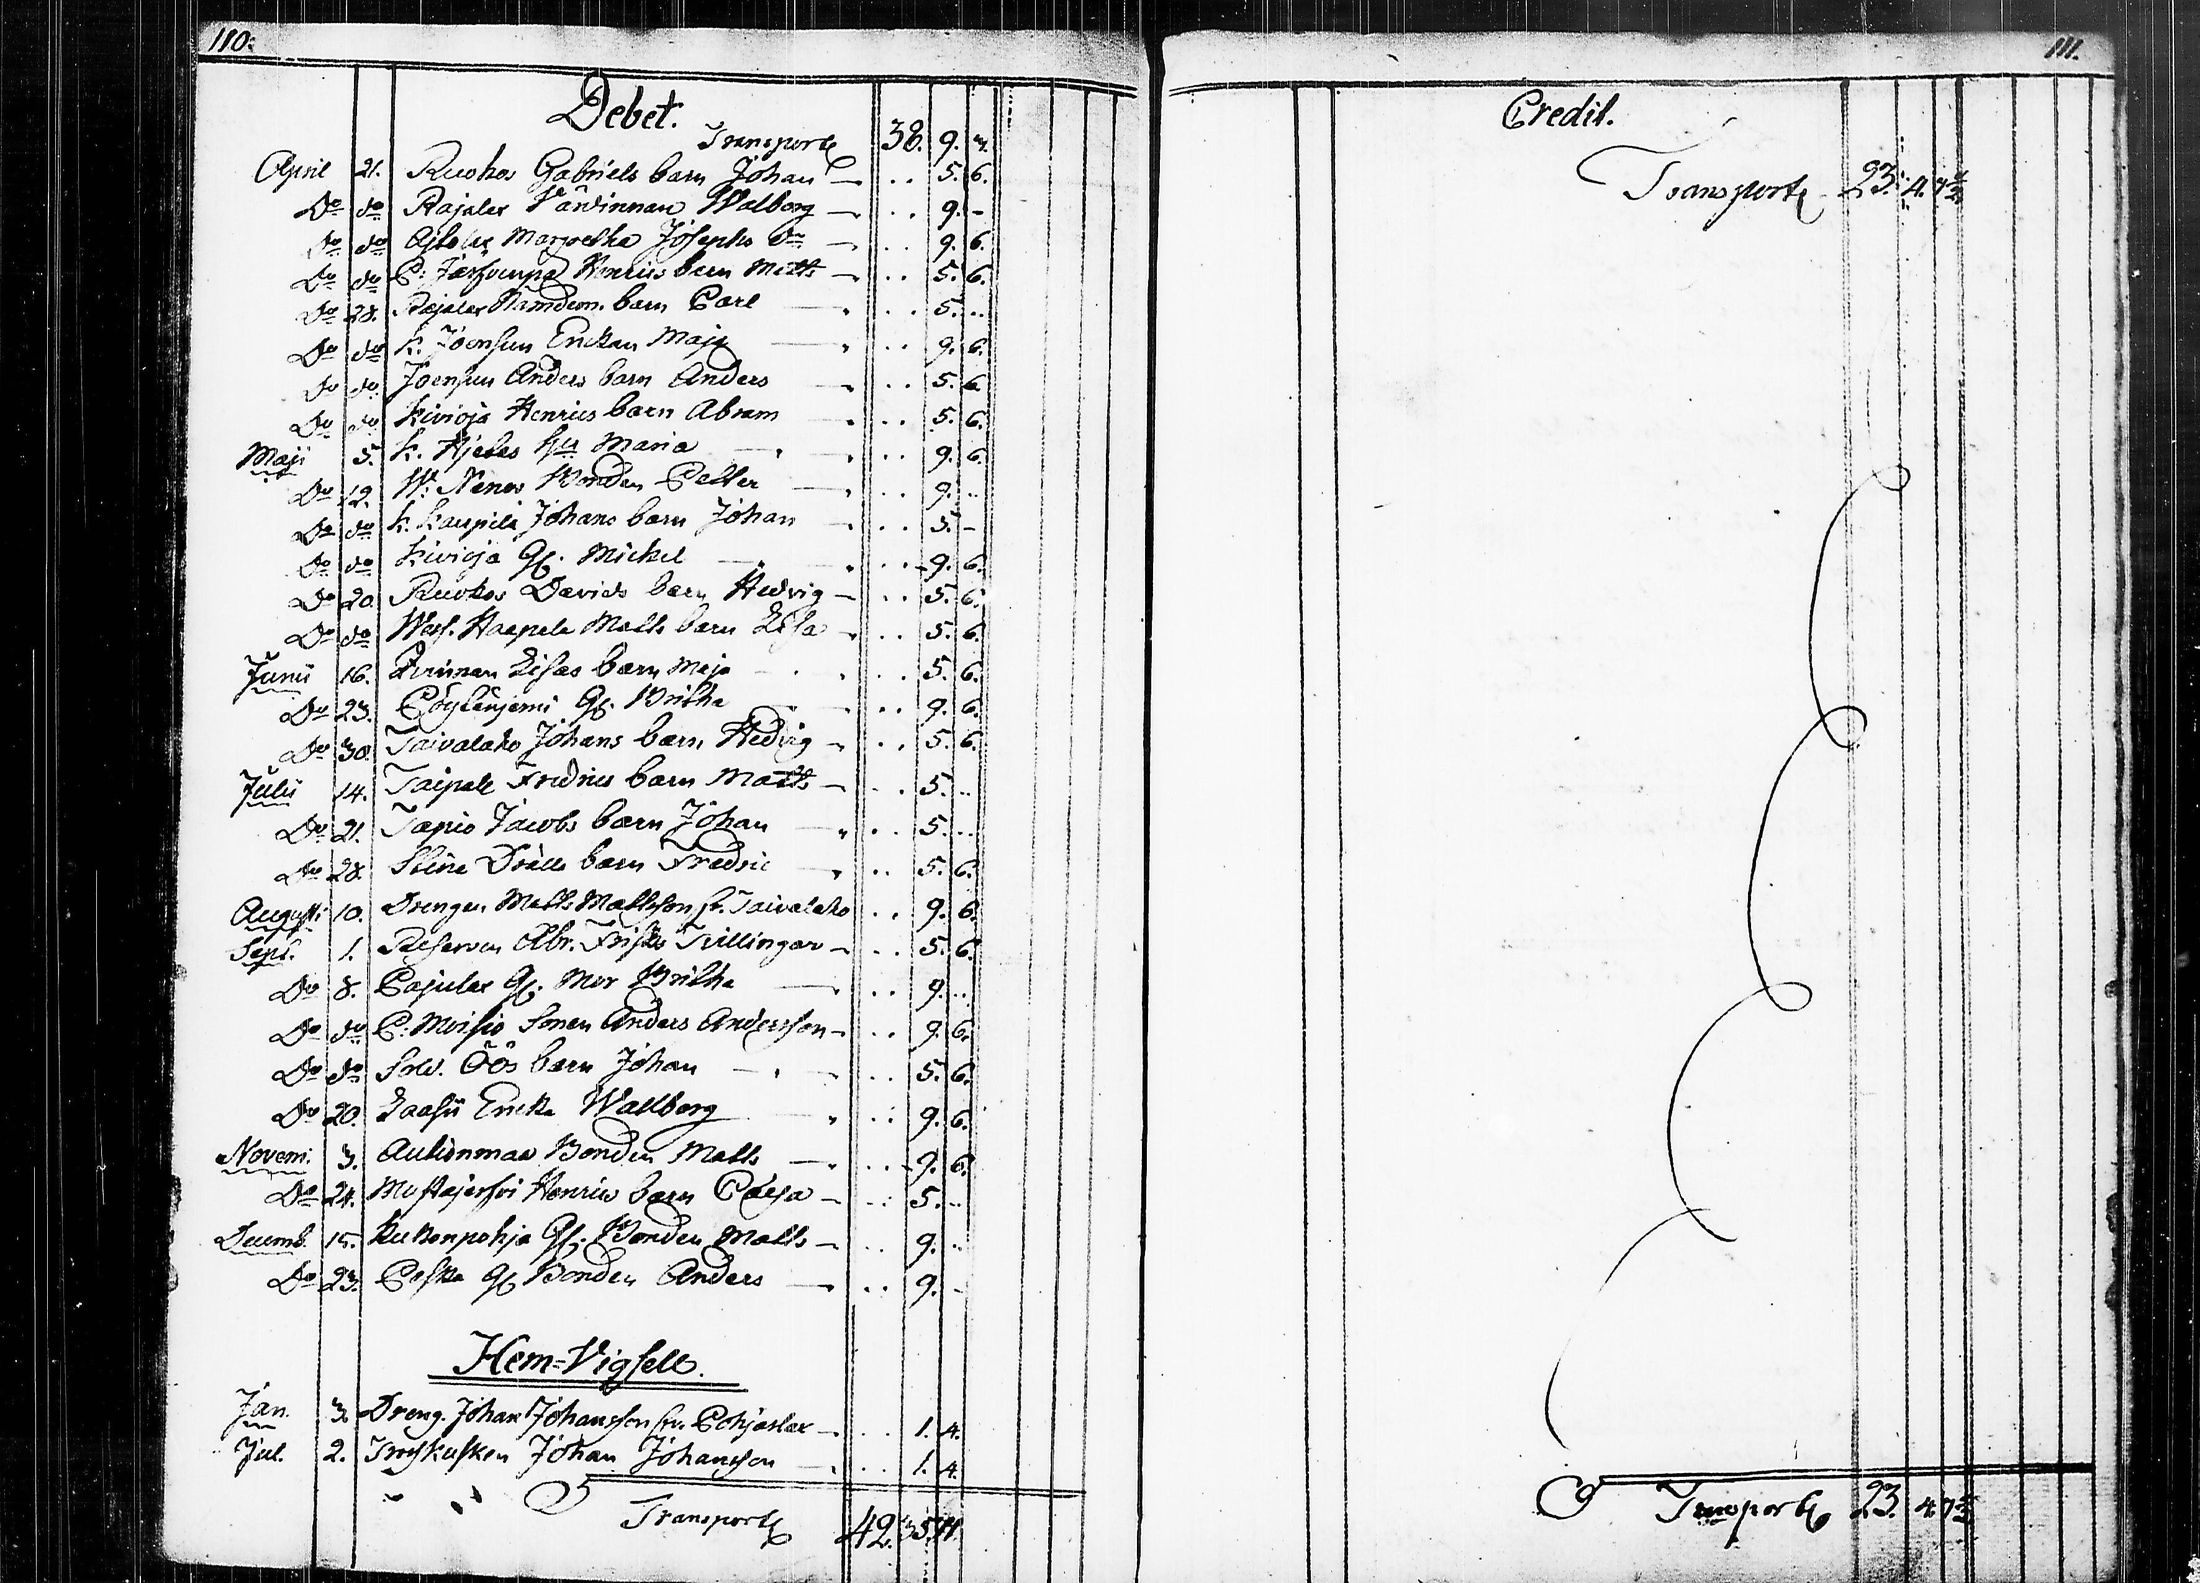 110.
Debet.
Transport 38. 9. 7.
April 21. Ruokos Gabriels barn Johan — .. 5. 6.
Do do Rajalax Wärdinnan Walborg — .. 9. -
Do do Margretha Josephs dr — .. 9. 6.
Do do P: Henrics barn Matts — .. 5. 6.
Do 28. Rajalax barn Carl — .. 5. ..
Do do K. Joensuu Enckan Maja — .. 9. 6.
Do do Joensuu Anders barn Anders — .. 5. 6.
Do do Kivioja Henrics barn Abram .. 5. 6.
Maji 5. K. Hjelas hu Maria .. 9. 6.
Do 12. W: Nenos Bonden Petter — .. 9. ..
Do do K. Kaupila Johans barn Johan .. 5. -
Do do Kivioja Gl. Michel — .. 9. 6.
Do 20. Ruokos Davids barn Hedvig — .. 5. 6.
Do do West. Haapala Matts barn Lisa .. 5. 6.
Junii 16. Lisas barn Maja .. 5. 6.
Do 23. Pöyläniemi Gl. Britha .. 9. 6.
Do 30. Taivalaho Johans barn Hedvig — .. 5. 6.
Julii 14. Taipale Fredrics barn Matts — .. 5. ..
Do 21. Tapio Jacobs barn Johan — .. 5. ..
Do 28. Stina Drälls barn Fredric .. 5. 6.
Augusti 10. Drengen Matts Mattsson fr. Taivalaho .. 9. 6.
Sept. 1. Reserven Abr. Frisks Tvillingar — .. 5. 6.
Do 8. Pajulax Gl. Mor Britha — .. 9. ..
Do do P. Moisio Sonen Anders Andersson — .. 9. 6.
Do do Sold. Öös barn Johan — .. 5. 6.
Do 20. Laasu Encka Wallborg — .. 9. 6.
Novem: 3. Autionmaa Bonden Matts — .. 9. 6.
Do 24. Mustajerfvi Henrics barn Caisa — .. 5. ..
Decemb. 15. Kukonpohja Gl. Bonden Matts — .. 9. ..
Do 23. Paska Gl Bonden Anders — .. 9. -
Hem=Vigsell.
Jan. 3. Dreng. Johan Johansson fr. Pohjaslax — .. 1. 4.
Jul. 2. Johan Johansson — .. 1. 4.
Transport 42. 35. 11.
111.
Credit.
Transport 23. 4. 7 1/2
Transport 23. 4. 7 1/2